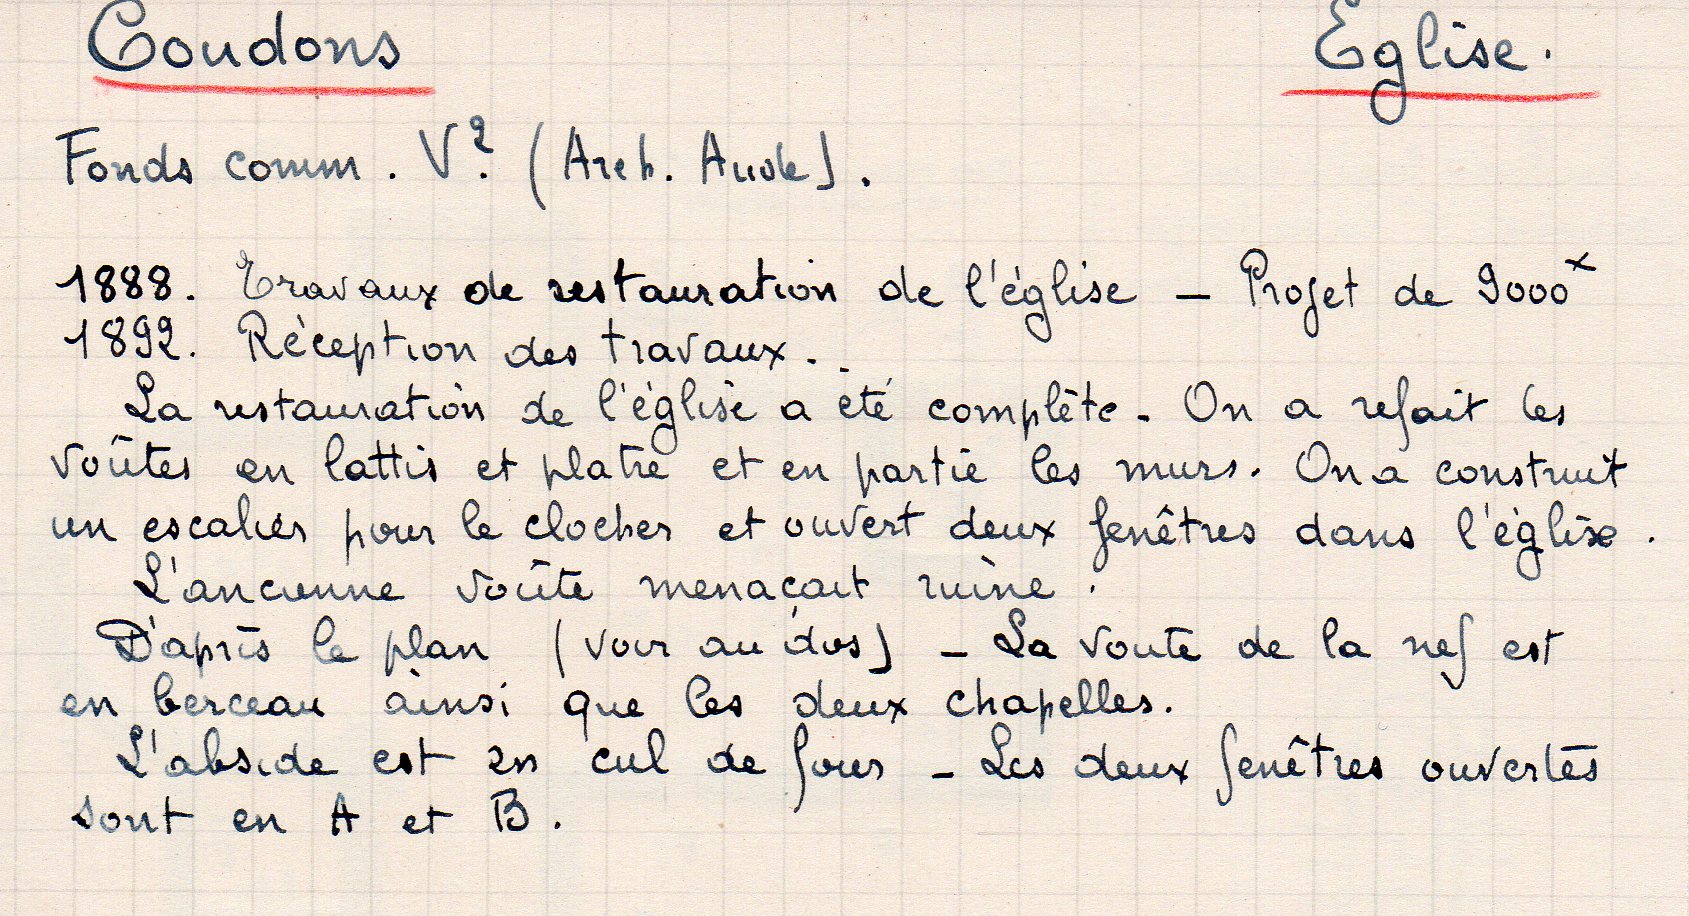 Coudons Eglise.
Fonds comm. V². (Arch. Aude).
1888. Travaux de restauration de l'église – Projet de 9000ˣ
1892. Réception des travaux.
La restauration de l'église a été complète. On a refait les
voûtes en lattis et platre et en partie les murs. On a construit
un escalier pour le clocher et ouvert deux fenêtres dans l'église.
L'ancienne voûte menaçait ruine.
D'après le plan (voir au dos) – La voute de la nef est
en berceau ainsi que les deux chapelles.
L'abside est en cul de four – Les deux fenêtres ouvertes
sont en A et B.